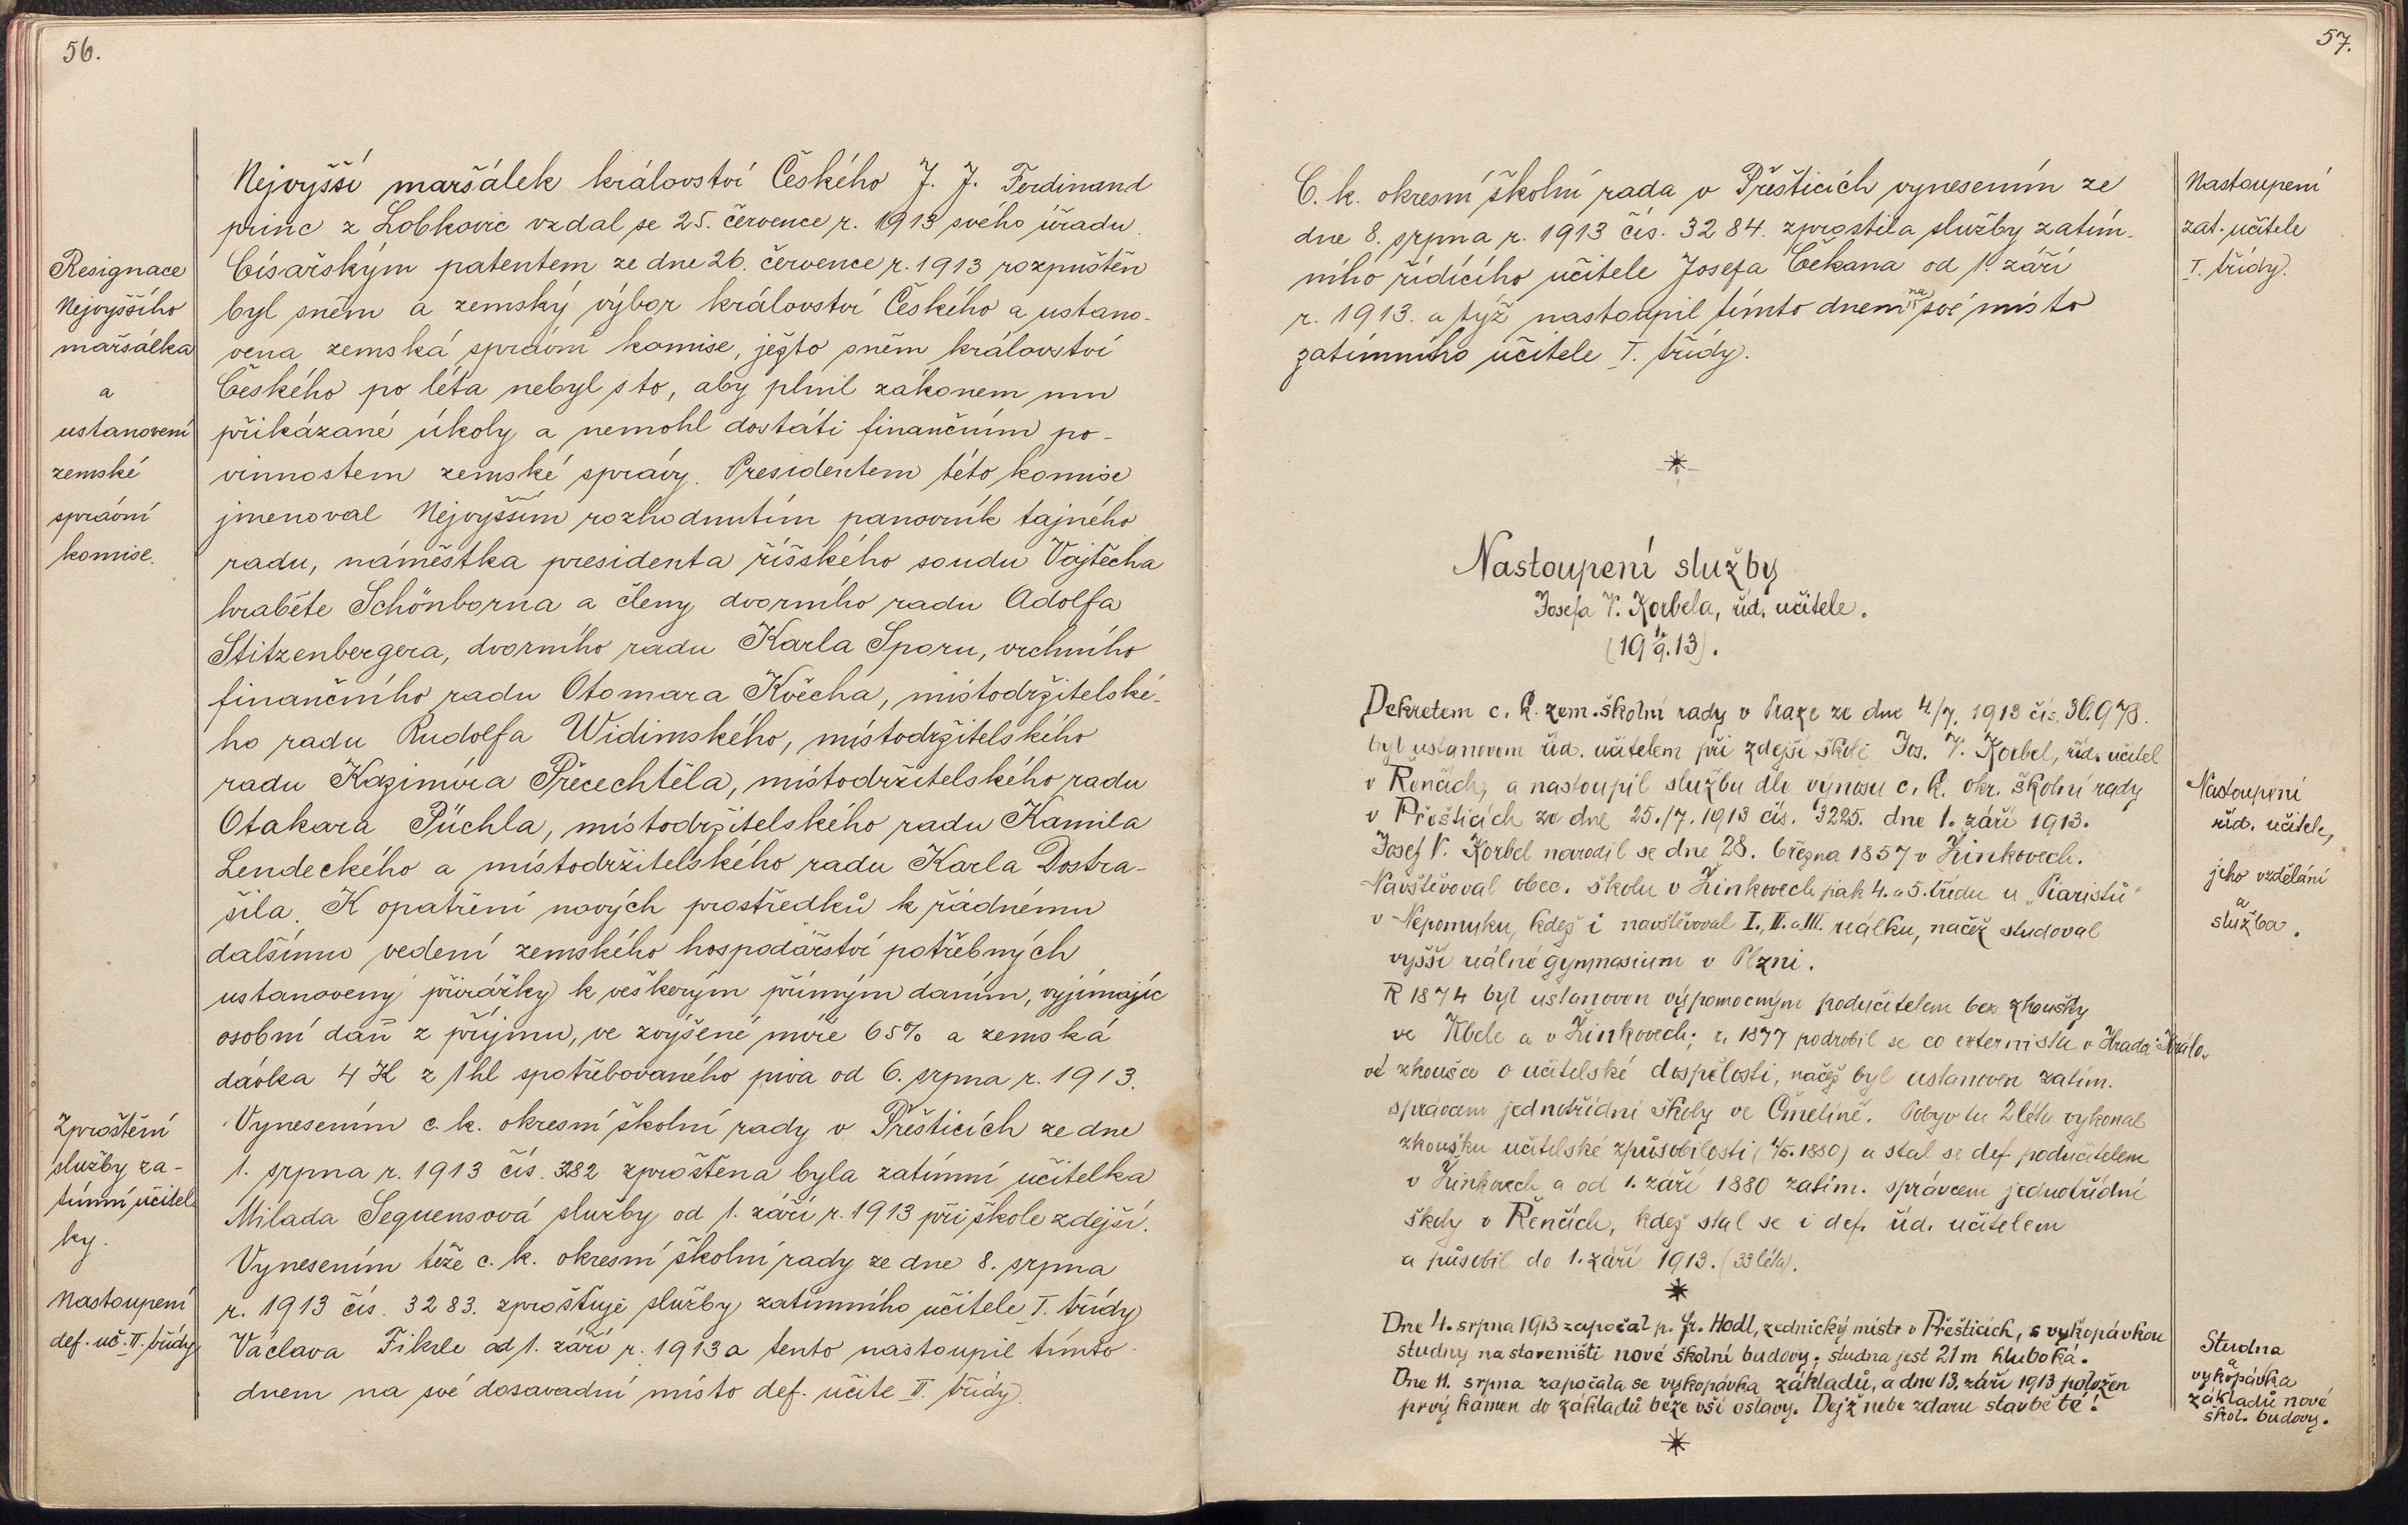 56.
Nejvyšší maršálek království Českého J. J. Ferdinand
princ z Lobkovic vzdal se 25. července r. 1913 svého úřadu.
Resignace
Nejvyššího
maršálka
a
ustanovení
zemské
správní
komise.
Císařským patentem ze dne 26. července r. 1913 rozpuštěn
byl sněm a zemský výbor království Českého a ustano-
vena zemská správní komise, ježto sněm království
Českého po léta nebyl s to, aby plnil zákonem mu
přikázané úkoly a nemohl dostáti finančním po-
vinnostem zemské správy. Presidentem této komise
jmenoval Nejvyšším rozhodnutím panovník tajného
radu, náměstka presidenta říšského soudu Vojtěcha
hraběte Schönborna a členy dvorního radu Adolfa
Stitzenbergera, dvorního radu Karla Sporu, vrchního
finančního radu Otomara Kvěcha, místodržitelské-
ho radu Rudolfa Widimského, místodržitelského
radu Kazimíra Přecechtěla, místodržitelského radu
Otakara Püchla, místodržitelského radu Kamila
Lendeckého a místodržitelského radu Karla Dostra-
šila. K opatření nových prostředků k řádnému
dalšímu vedení zemského hospodářství potřebných
ustanoveny přirážky k veškerým přímým daním, vyjímajíc
osobní daň z příjmu, ve zvýšené míře 65% a zemská
dávka 4 K z 1 hl spotřebovaného piva od 6. srpna r. 1913.
Zproštění
služby za-
tímní učitel
ky.
Vynesením c. k. okresní školní rady v Přešticích ze dne
1. srpna r. 1913 čís. 3282 zproštěna byla zatímní učitelka
Milada Seguensová služby od 1. září r. 1913 při škole zdejší.
Vynesením téže c. k. okresní školní rady ze dne 8. srpna
Nastoupení
def. uč. II. třídy
r. 1913 čís. 3283. zprošťuje služby zatímního učitele I. třídy
Václava Fikrle od 1. září r. 1913 a tento nastoupil tímto
dnem na své dosavadní místo def. učite II. třídy.
57.
C. k. okresní školní rada v Přešticích vynesením ze
dne 8. srpna r. 1913 čís. 3284. zprostila služby zatím-
ního řídícího učitele Josefa Čekana od 1. září
r. 1913. a týž nastoupil tímto dnem na své místo
zatímního učitele I. třídy.
Nastoupení
zat. učitele
I. třídy.
Nastoupení služby
Josefa V. Korbela, říd. učitele.
(19 1/9. 13).
Dekretem c. k. zem. školní rady v Praze ze dne 4./7. 1913 čís. 30.978.
byl ustanoven říd. učitelem při zdejší škole Jos. V. Korbel, říd. učitel
v Řenčích, a nastoupil službu dle výnosu c. k. okr. školní rady
v Přešticích ze dne 25./7. 1913 čís. 3225. dne 1. září 1913.
Josef V. Korbel narodil se dne 28. března 1857 v Žinkovech.
Navštěvoval obec. školu v Žinkovech, pak 4. a 5. třídu u „Piaristů“
v Nepomuku, kdež i navštěvoval I., II. a III. reálku, načež studoval
vyšší reálné gymnasium v Plzni.
R 1874 byl ustanoven výpomocným podučitelem bez zkoušky
ve Kbele a v Žinkovech; r. 1877 podrobil se co externista v Hradci Králo-
vé zkoušce o učitelské dospělosti, načež byl ustanoven zatím.
správcem jednotřídní školy ve Čmelíně. Pobyv tu 2 léta vykonal
zkoušku učitelské způsobilosti (1/5. 1880) a stal se def. podučitelem
v Žinkovech a od 1. září 1880 zatím. správcem jednotřídní
školy v Řenčích, kdež stal se i def. říd. učitelem
a působil do 1. září 1913. (33 léta).
Nastoupení
říd. učitele,
jeho vzdělání
a
služba.
Dne 4. srpna 1913 započal p. Fr. Hodl, zednický mistr v Přešticích, s vykopávkou
studny na staveništi nové školní budovy; studna jest 21 m hluboká.
Dne 11. srpna započala se vykopávka základů, a dne 13. září 1913 položen
prvý kámen do základů beze vší oslavy. Dejž nebe zdaru stavbě té!
Studna
a
vykopávka
základů nové
škol. budovy.